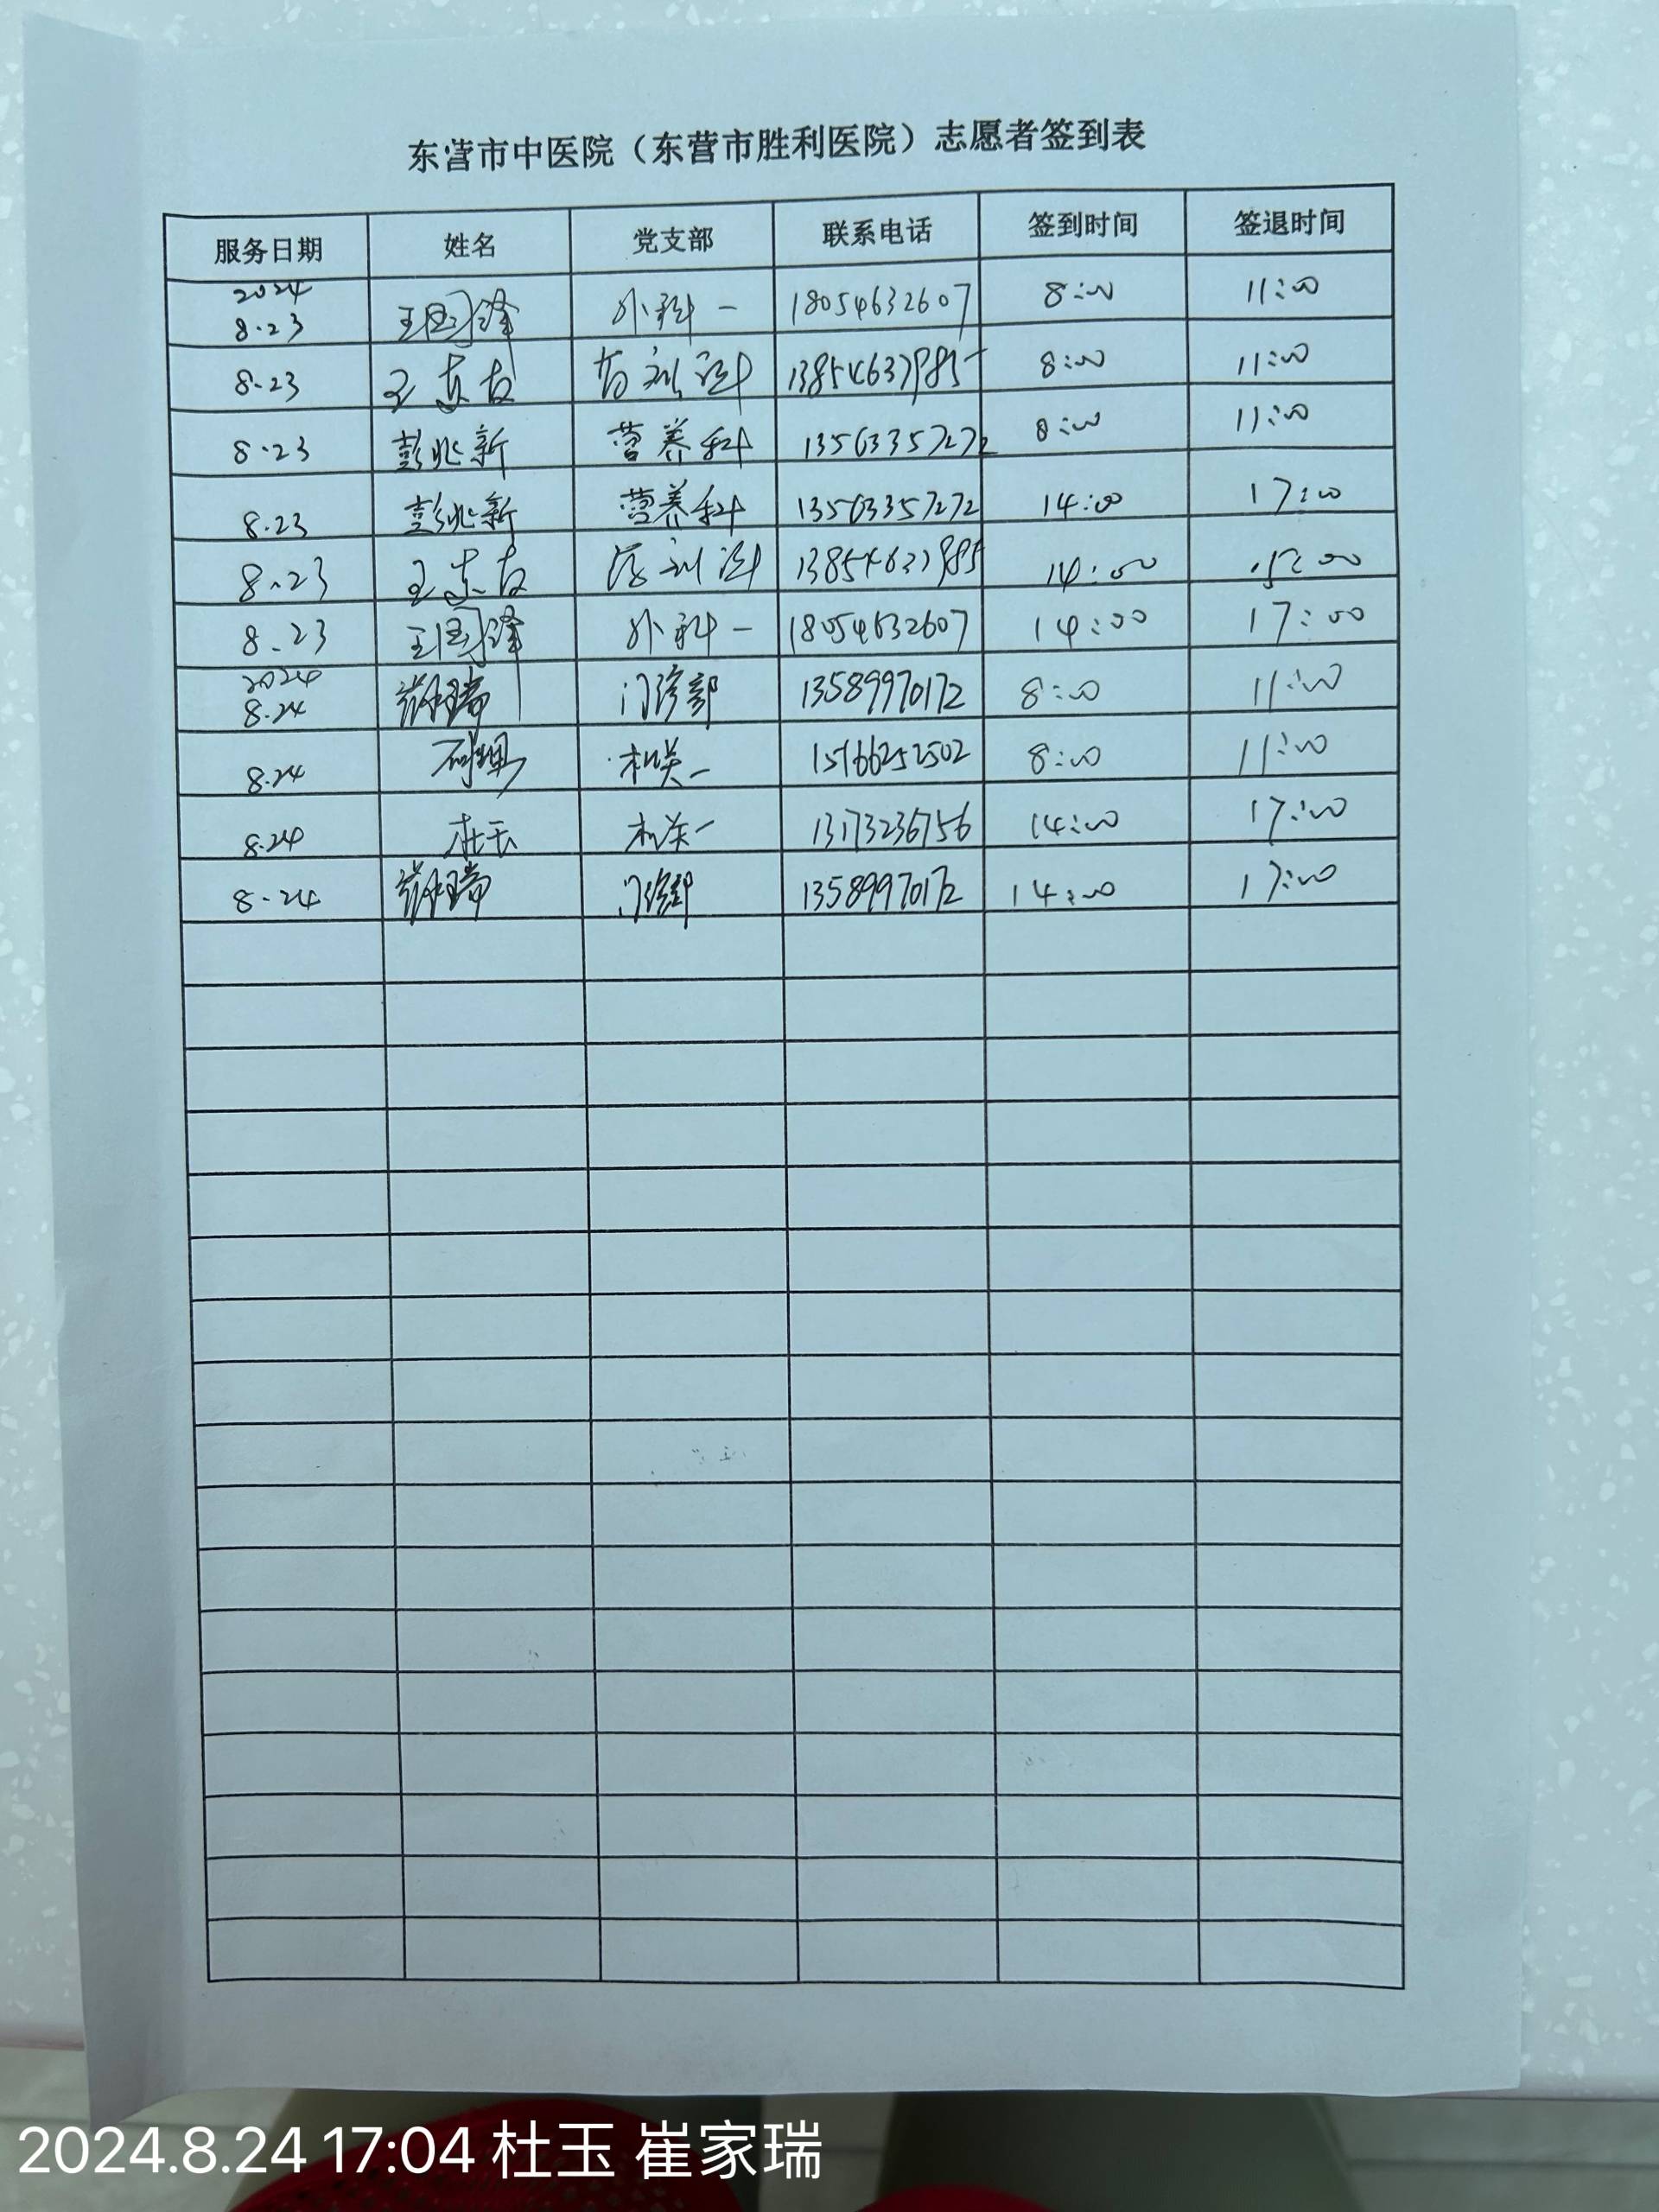 东营市中医院（东营市胜利医院）志愿者签到表
服务日期 姓名 党支部 联系电话 签到时间 签退时间
2024
8.23 王国锋 外科一 18054632607 8:00 11:00
8.23 王东 13854637985 8:00 11:00
8.23 彭兆新 营养科 13563357272 8:00 11:00
8.23 彭兆新 营养科 13563357272 14:00 17:00
8.23 王东 13854637985 14:00
8.23 王国锋 外科一 18054632607 14:00 17:00
2024
8.24 崔家瑞 门诊部 13589970172 8:00 11:00
8.24 机关一 15166252502 8:00 11:00
8.24 杜玉 机关一 13173236756 14:00 17:00
8.24 崔家瑞 门诊部 13589970172 14:00 17:00
2024.8.24 17:04 杜玉 崔家瑞